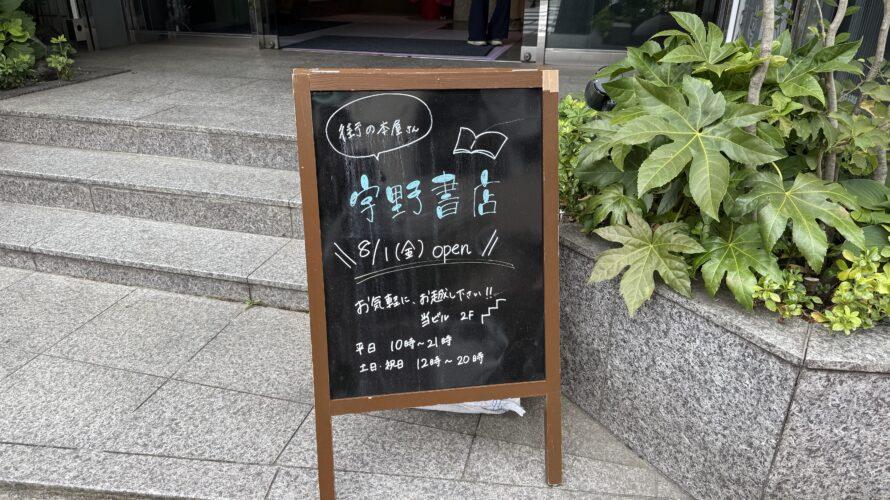 街の本屋さん
宇野書店
\\ 8/1(金) open //
お気軽に、お越し下さい!!
当ビル 2F
平日 10時～21時
土日・祝日 12時～20時